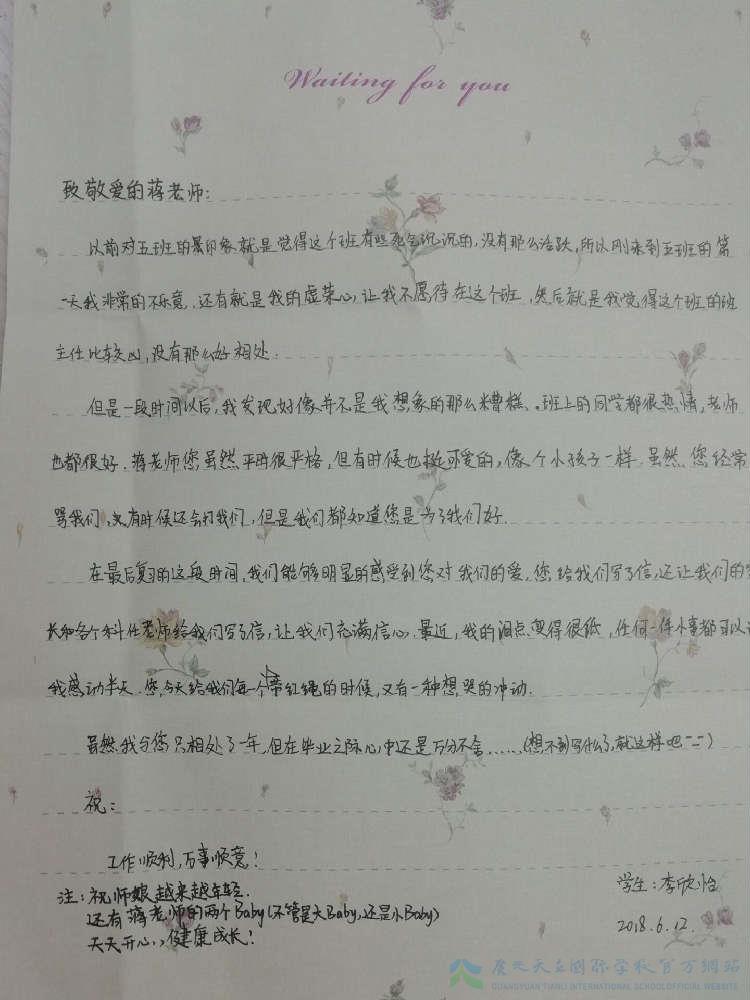 Waiting for you
致敬爱的蒋老师:
以前对五班的景印象就是觉得这个班有些死气沉沉的,没有那么活跃,所以刚来到五班的第
一天我非常的不乐意.还有就是我的虚荣心,让我不愿待在这个班,然后就是我觉得这个班的班
主任比较凶,没有那么好相处.
但是一段时间以后,我发现好像并不是我想象的那么糟糕、。班上的同学都很热情,老师
也都很好.蒋老师您虽然平时很严格,但有时候也挺可爱的,像个小孩子一样.虽然您经常
骂我们,又有时候还会打我们,但是我们都知道您是为了我们好.
在最后复习的这段时间,我们能够明显的感受到您对我们的爱,您给我们写了信,还让我们的家
长和各个科任老师给我们写了信,让我们充满信心.最近,我的泪点变得很低,任何一件小事都可以让
我感动半天.您今天给我们每一个人带红绳的时候,又有一种想哭的冲动.
虽然我与您只相处了一年,但在毕业之际心中还是万分不舍……(想不到写什么了,就这样吧-_-)
祝:
工作顺利,万事顺意!
注:祝师娘越来越年轻.
还有蒋老师的两个Baby(不管是大Baby,还是小Baby)
天天开心,,健康成长!
学生:李欣怡
2018.6.12.
广元天立国际学校官方網站
GUANGYUAN TIANLI INTERNATIONAL SCHOOL OFFICIAL WEBSITE